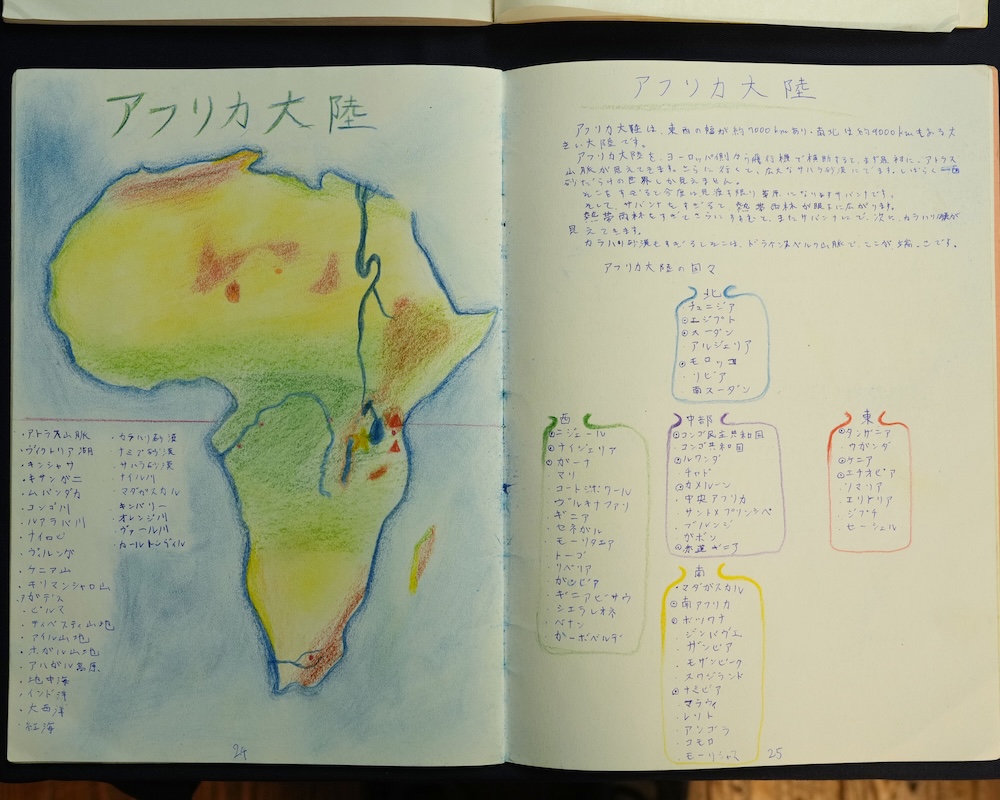 アフリカ大陸
・アトラス山脈
・ヴィクトリア湖
・キンシャサ
・キサンガニ
・ムバンダカ
・コンゴ川
・ルアラバ川
・ナイロビ
・ケニア山
・キリマンジャロ山
・アガデス
・ビルマ
・ティベスティ山地
・アイル山地
・ホガル山地
・アハガル高原
・地中海
・インド洋
・大西洋
・紅海
・カラハリ砂漠
・ナミブ砂漠
・サハラ砂漠
・ナイル川
・マダガスカル
・キンバリー
・オレンジ川
・ヴァール川
24
アフリカ大陸
アフリカ大陸は、東西の幅が約7000kmあり、南北は約8000kmもある大
きい大陸です。
アフリカ大陸を、ヨーロッパ側から飛行機で横断すると、まず最初に、アトラス
山脈が見えてきます。さらに行くと、広大なサハラ砂漠にでます。しばらく
砂だらけの世界しか見えません。
そこをすぎると今度は見渡す限り草原になりますサバンナです。
そして、サバンナをすぎると熱帯雨林が眼下に広がります。
熱帯雨林をすぎてさらにすすむと、またサバンナにで、次に、カラハリ砂漠が
見えてきます。
カラハリ砂漠をすぎるとそこは、ドラケンスベルク山脈で、ここが端っこです。
アフリカ大陸の国々
北
チュニジア
エジプト
スーダン
アルジェリア
モロッコ
リビア
南スーダン
西
ニジェール
ナイジェリア
ガーナ
マリ
コートジボワール
ブルキナファソ
ギニア
セネガル
モーリタニア
トーゴ
リベリア
ガンビア
ギニアビサウ
シエラレオネ
ベナン
カーボベルデ
中部
コンゴ民主共和国
コンゴ共和国
ルワンダ
チャド
カメルーン
中央アフリカ
サントメプリンシペ
ブルンジ
ガボン
赤道ギニア
東
タンザニア
ウガンダ
ケニア
エチオピア
ソマリア
エリトリア
ジブチ
セーシェル
南
マダガスカル
南アフリカ
ボツワナ
ジンバヴエ
ザンビア
モザンビーク
スワジランド
ナミビア
マラウィ
レソト
アンゴラ
コモロ
モーリシャス
25